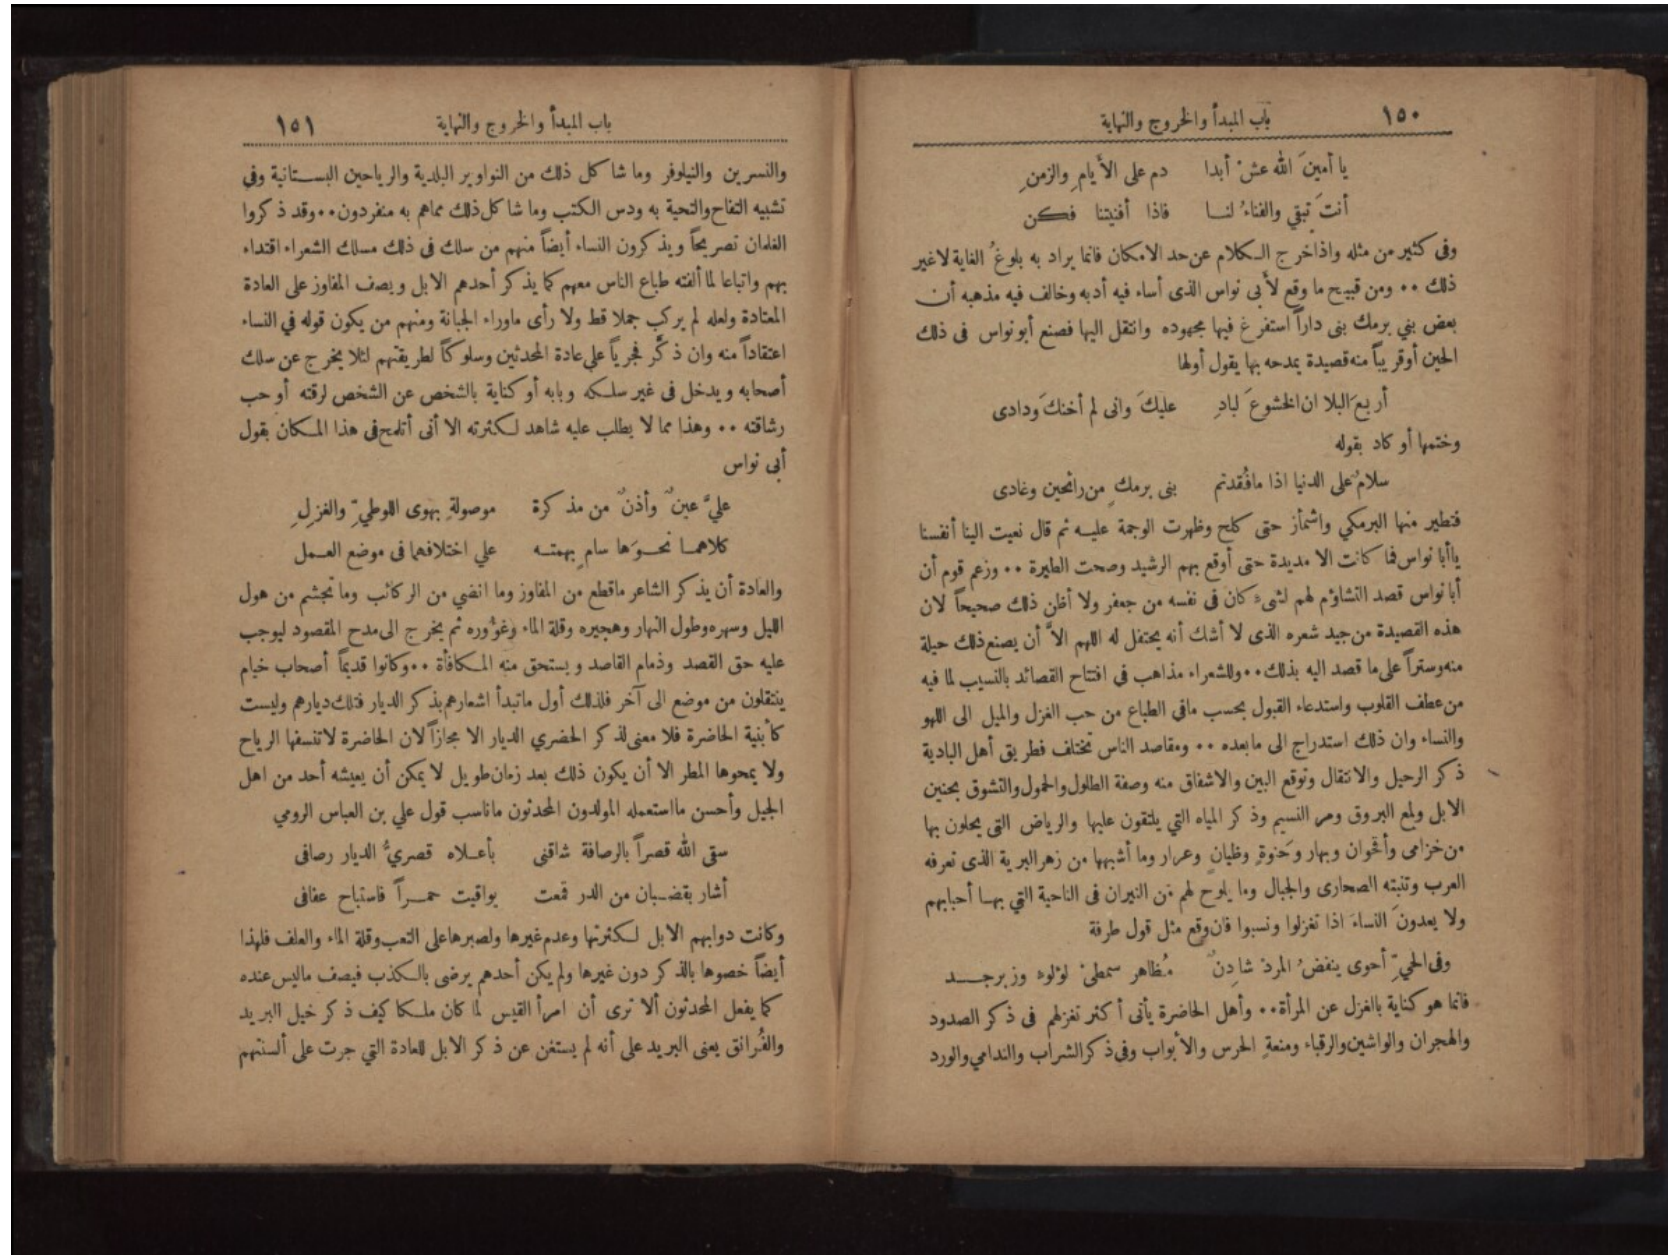 ١٥٠
باب المبدأ والخروج والنهاية
يا أمينَ الله عشْ أبدا دم على الأَيامِ والزمنِ
أنتَ تبقي والفناءُ لنا فاذا أفنيتنا فكن
وفى كثير من مثله واذاخرج الكلام عن حد الامكان فانما يراد به بلوغُ الغاية لاغير
ذلك ٠٠ ومن قبيح ما وقع لأبى نواس الذى أساء فيه أدبه وخالف فيه مذهبه أن
بعض بني برمك بنى داراً استفرغ فيها مجهوده وانتقل اليها فصنع أبونواس فى ذلك
الحين أوقريباً منه قصيدة يمدحه بها يقول أولها
أربعَ البلا ان الخشوعَ لبادِ عليكَ وانى لم أخنكَ ودادى
وختمها أو كاد بقوله
سلامٌ على الدنيا اذا مافُقدتم بنى برمكٍ من رائحين وغادى
فتطير منها البرمكي واشمأز حتى كلح وظهرت الوجمة عليه ثم قال نعيت الينا أنفسنا
ياأبا نواس فما كانت الا مديدة حتى أوقع بهم الرشيد وصحت الطيرة ٠٠ وزعم قوم أن
أبا نواس قصد التشاؤم لهم لشىء كان فى نفسه من جعفر ولا أظن ذلك صحيحاً لان
هذه القصيدة من جيد شعره الذى لا أشك أنه يحتفل له اللهم الاَّ أن يصنع ذلك حيلة
منه وستراً على ما قصد اليه بذلك٠٠وللشعراء مذاهب في افتتاح القصائد بالنسيب لما فيه
من عطف القلوب واستدعاء القبول بحسب مافي الطباع من حب الغزل والميل الى اللهو
والنساء وان ذلك استدراج الى مابعده ٠٠ ومقاصد الناس تختلف فطريق أهل البادية
ذكر الرحيل والانتقال وتوقع البين والاشفاق منه وصفة الطلول والحمول والتشوق بحنين
الابل ولمع البروق ومر النسيم وذكر المياه التي يلتقون عليها والرياض التى يحلون بها
من خزامى وأقحوان وبهار وحَنوةٍ وظيان وعرار وما أشبهها من زهر البرية الذى تعرفه
العرب وتنبته الصحارى والجبال وما يلوح لهم من النيران فى الناحية التي بها أحبابهم
ولا يعدونَ النساءَ اذا تغزلوا ونسبوا فان وقع مثل قول طرفة
وفى الحيِّ أحوى ينفضُ المردَ شادنٌ مُظاهر سمطىْ لؤلوء وزبرجد
فانما هو كناية بالغزل عن المرأة٠٠ وأهل الحاضرة يأتى أكثر تغزلهم فى ذكر الصدود
والهجران والواشين والرقباء ومنعةِ الحرس والأبواب وفى ذكر الشراب والندامي والورد
١٥١
باب المبدأ والخروج والنهاية
والنسرين والنيلوفر وما شاكل ذلك من النواوير البلدية والرياحين البستانية وفي
تشبيه التفاح والتحية به ودس الكتب وما شاكل ذلك مماهم به منفردون٠٠وقد ذكروا
الغلمان تصريحاً ويذكرون النساء أيضاً منهم من سلك فى ذلك مسلك الشعراء اقتداء
بهم واتباعا لما ألفته طباع الناس معهم كما يذكر أحدهم الابل ويصف المفاوز على العادة
المعتادة ولعله لم يركب جملا قط ولا رأى ماوراء الجبانة ومنهم من يكون قوله في النساء
اعتقاداً منه وان ذكَّر فجرياً علي عادة المحدثين وسلوكاً لطريقتهم لئلا يخرج عن سلك
أصحابه ويدخل فى غير سلكه وبابه أو كناية بالشخص عن الشخص لرقته أو حب
رشاقته ٠٠ وهذا مما لا يطلب عليه شاهد لكثرته الا أنى أتملح فى هذا المكان بقول
أبى نواس
عليَّ عينٌ وأذنٌ من مذكرة موصولةِ بهوى اللوطيِّ والغزلِ
كلاهما نحوَها سامٍ بهمته علي اختلافهما فى موضع العمل
والعادة أن يذكر الشاعر ماقطع من المفاوز وما انضي من الركائب وما تجشم من هول
الليل وسهره وطول النهار وهجيره وقلة الماء وغؤوره ثم يخرج الى مدح المقصود ليوجب
عليه حق القصد وذمام القاصد ويستحق منه المكافأة ٠٠وكانوا قديماً أصحاب خيام
ينتقلون من موضع الى آخر فلذلك أول ماتبدأ اشعارهم بذكر الديار فتلك ديارهم وليست
كأبنية الحاضرة فلا معنى لذكر الحضري الديار الا مجازاً لان الحاضرة لاتنسفها الرياح
ولا يمحوها المطر الا أن يكون ذلك بعد زمان طويل لا يمكن أن يعيشه أحد من اهل
الجيل وأحسن مااستعمله المولدون المحدثون ماناسب قول علي بن العباس الرومي
سقى الله قصراً بالرصافة شاقنى بأعلاه قصريُّ الديار رصافى
أشار بقضبان من الدر قمعت يواقيت حمراً فاستباح عفافى
وكانت دوابهم الابل لكثرتها وعدم غيرها ولصبرها على التعب وقلة الماء والعلف فلهذا
أيضاً خصوها بالذكر دون غيرها ولم يكن أحدهم يرضى بالكذب فيصف ماليس عنده
كما يفعل المحدثون ألا ترى أن امرأ القيس لما كان ملكا كيف ذكر خيل البريد
والفُرانق يعنى البريد على أنه لم يستغن عن ذكر الابل للعادة التي جرت على ألسنتهم